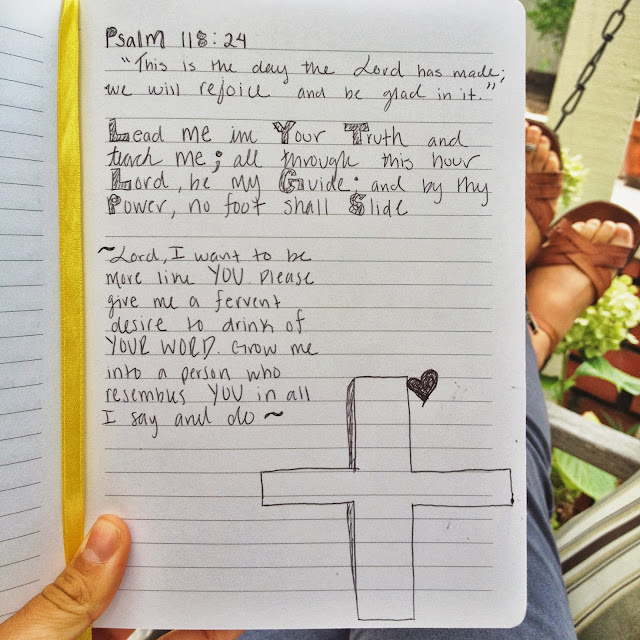 Psalm 118:24
"This is the day the Lord has made;
we will rejoice and be glad in it."
Lead me in Your Truth and
teach me; all through this hour
Lord, be my Guide; and by thy
Power, no foot shall Slide
~Lord, I want to be
more like YOU. Please
give me a fervent
desire to drink of
YOUR WORD. Grow me
into a person who
resembles YOU in all
I say and do~